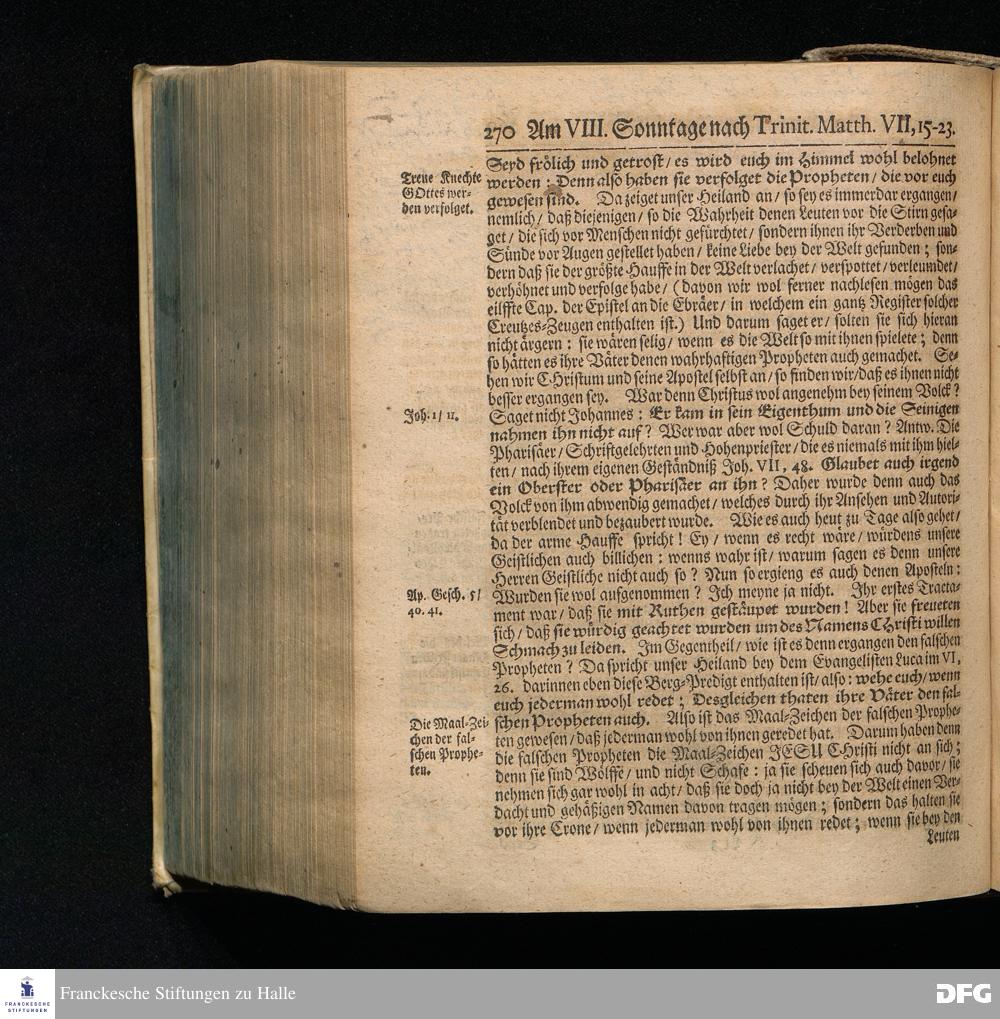 270 Am VIII. Sonntage nach Trinit. Matth. VII, 15-23.
Treue Knechte
GOttes wer-
den verfolget.
Seyd frölich und getrost/ es wird euch im Himmel wohl belohnet
werden: Denn also haben sie verfolget die Propheten/ die vor euch
gewesen sind. Da zeiget unser Heiland an/ so sey es immerdar ergangen/
nemlich/ daß diejenigen/ so die Wahrheit denen Leuten vor die Stirn gesa-
get/ die sich vor Menschen nicht gefürchtet/ sondern ihnen ihr Verderben und
Sünde vor Augen gestellet haben/ keine Liebe bey der Welt gefunden; son-
dern daß sie der größte Hauffe in der Welt verlachet/ verspottet/ verleumdet/
verhöhnet und verfolge habe/ (davon wir wol ferner nachlesen mögen das
eilffte Cap. der Epistel an die Ebräer/ in welchem ein gantz Register solcher
Creutzes-Zeugen enthalten ist.) Und darum saget er/ solten sie sich hieran
nicht ärgern: sie wären selig/ wenn es die Welt so mit ihnen spielete; denn
so hätten es ihre Väter denen wahrhaftigen Propheten auch gemachet. Se-
hen wir CHristum und seine Apostel selbst an/ so finden wir/ daß es ihnen nicht
besser ergangen sey. War denn Christus wol angenehm bey seinem Volck?
Joh. 1/ 11.
Saget nicht Johannes: Er kam in sein Eigenthum und die Seinigen
nahmen ihn nicht auf? Wer war aber wol Schuld daran? Antw. Die
Pharisäer/ Schriftgelehrten und Hohenpriester/ die es niemals mit ihm hiel-
ten/ nach ihrem eigenen Geständniß Joh. VII, 48. Glaubet auch irgend
ein Oberster oder Pharisäer an ihn? Daher wurde denn auch das
Volck von ihm abwendig gemachet/ welches durch ihr Ansehen und Autori-
tät verblendet und bezaubert wurde. Wie es auch heut zu Tage also gehet/
da der arme Hauffe spricht! Ey/ wenn es recht wäre/ würdens unsere
Geistlichen auch billichen: wenns wahr ist/ warum sagen es denn unsere
Herren Geistliche nicht auch so? Nun so ergieng es auch denen Aposteln:
Ap. Gesch. 5/
40. 41.
Wurden sie wol aufgenommen? Ich meyne ja nicht. Ihr erstes Tracta-
ment war/ daß sie mit Ruthen gestäupet wurden! Aber sie freueten
sich/ daß sie würdig geachtet wurden um des Namens CHristi willen
Schmach zu leiden. Im Gegentheil/ wie ist es denn ergangen den falschen
Propheten? Da spricht unser Heiland bey dem Evangelisten Luca im VI,
26. darinnen eben diese Berg-Predigt enthalten ist/ also: wehe euch/ wenn
euch jederman wohl redet; Desgleichen thaten ihre Väter den fal-
Die Maal-Zei-
chen der fal-
schen Prophe-
ten.
schen Propheten auch. Also ist das Maal-Zeichen der falschen Prophe-
ten gewesen/ daß jederman wohl von ihnen geredet hat. Darum haben denn
die falschen Propheten die Maal-Zeichen JESU CHristi nicht an sich;
denn sie sind Wölffe/ und nicht Schafe: ja sie scheuen sich auch davor/ sie
nehmen sich gar wohl in acht/ daß sie doch ja nicht bey der Welt einen Ver-
dacht und gehäßigen Namen davon tragen mögen; sondern das halten sie
vor ihre Crone/ wenn jederman wohl von ihnen redet; wenn sie bey den
Leuten
FRANCKESCHE
STIFTUNGEN
Franckesche Stiftungen zu Halle
DFG